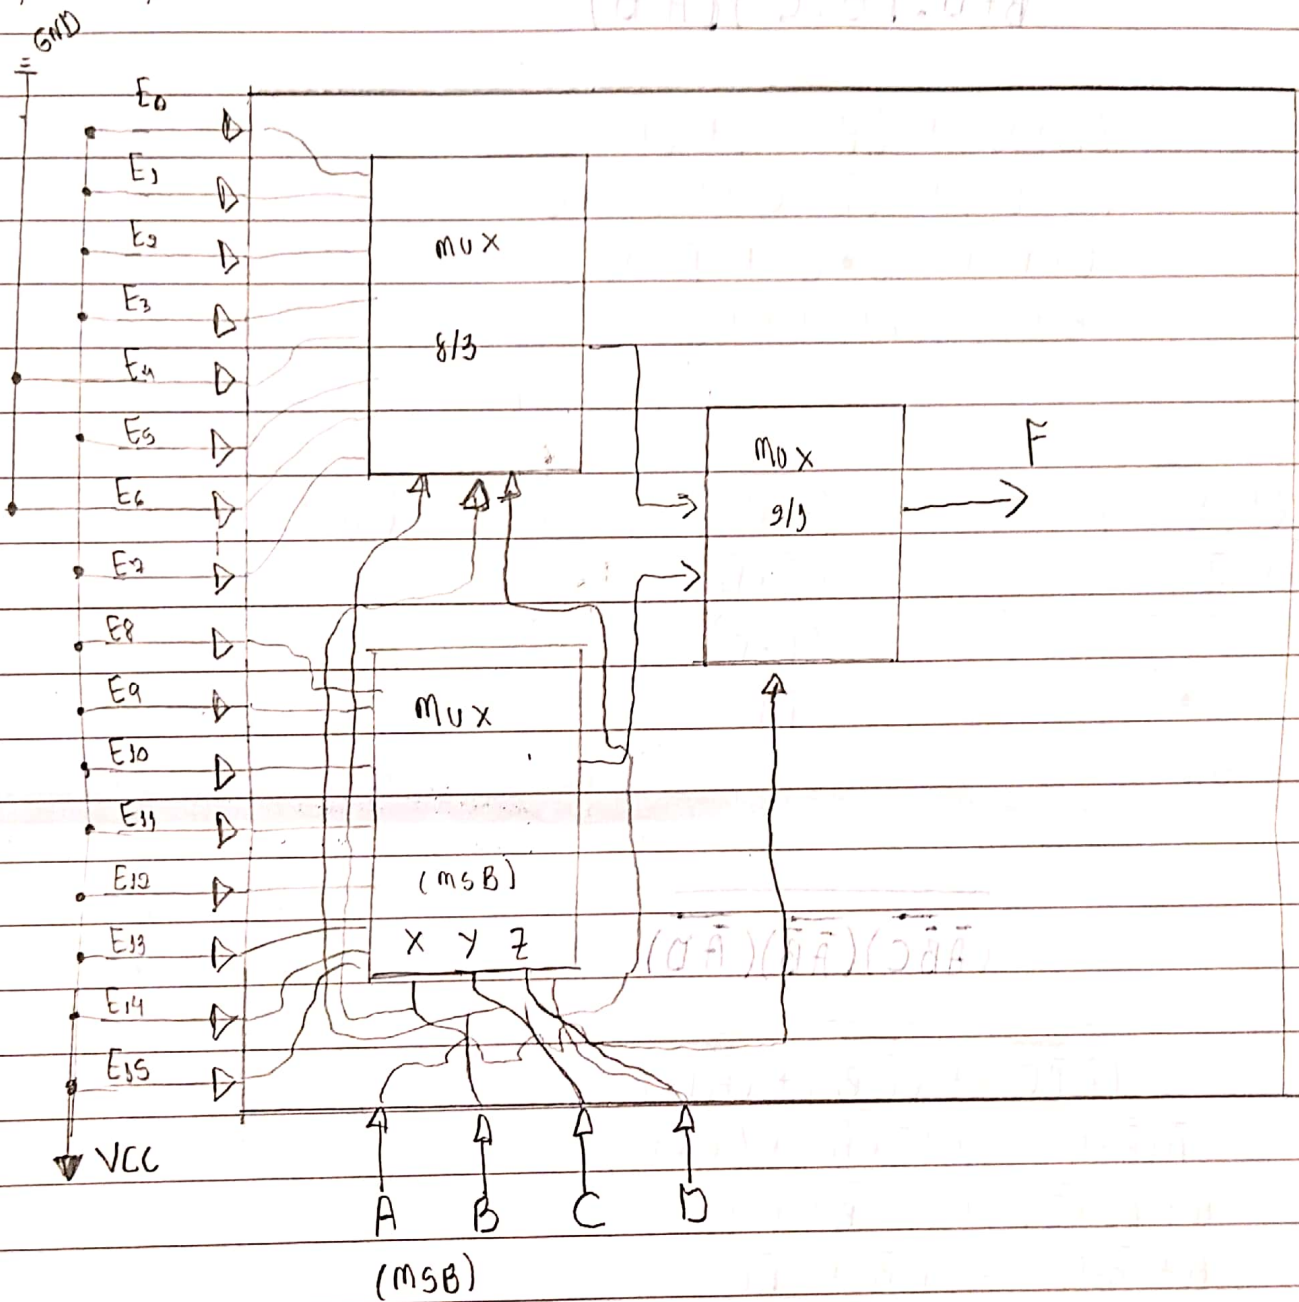 GND
E0
E1
E2
E3
E4
E5
E6
E7
E8
E9
E10
E11
E12
E13
E14
E15
VCC
MUX
8/3
MUX
(MSB)
X Y Z
MUX
2/1
F
A B C D
(MSB)